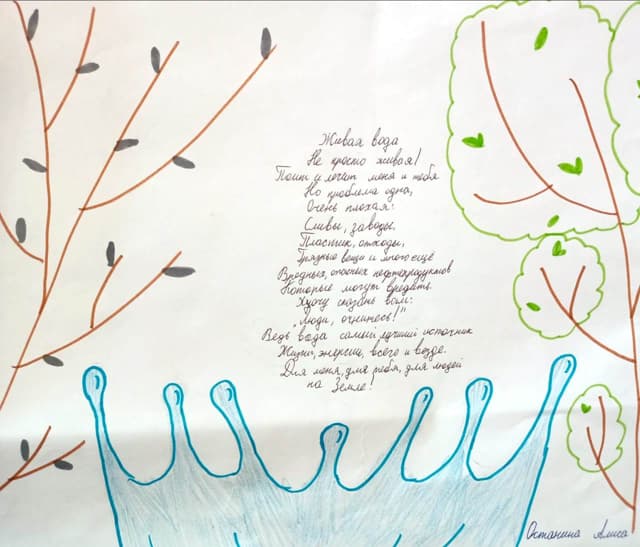 Живая вода
Не просто живая!
Поит и лечит меня и тебя
Но проблема одна,
Очень плохая:
Сливы, заводы,
Пластик, отходы,
Грязные вещи и много ещё
Вредных, опасных нефтепродуктов
Которые могут вредить.
Хочу сказать вам:
"Люди, очнитесь!"
Ведь вода самый лучший источник
Жизни, энергии, всего и везде.
Для меня, для тебя, для людей
на Земле!
Останина Алиса